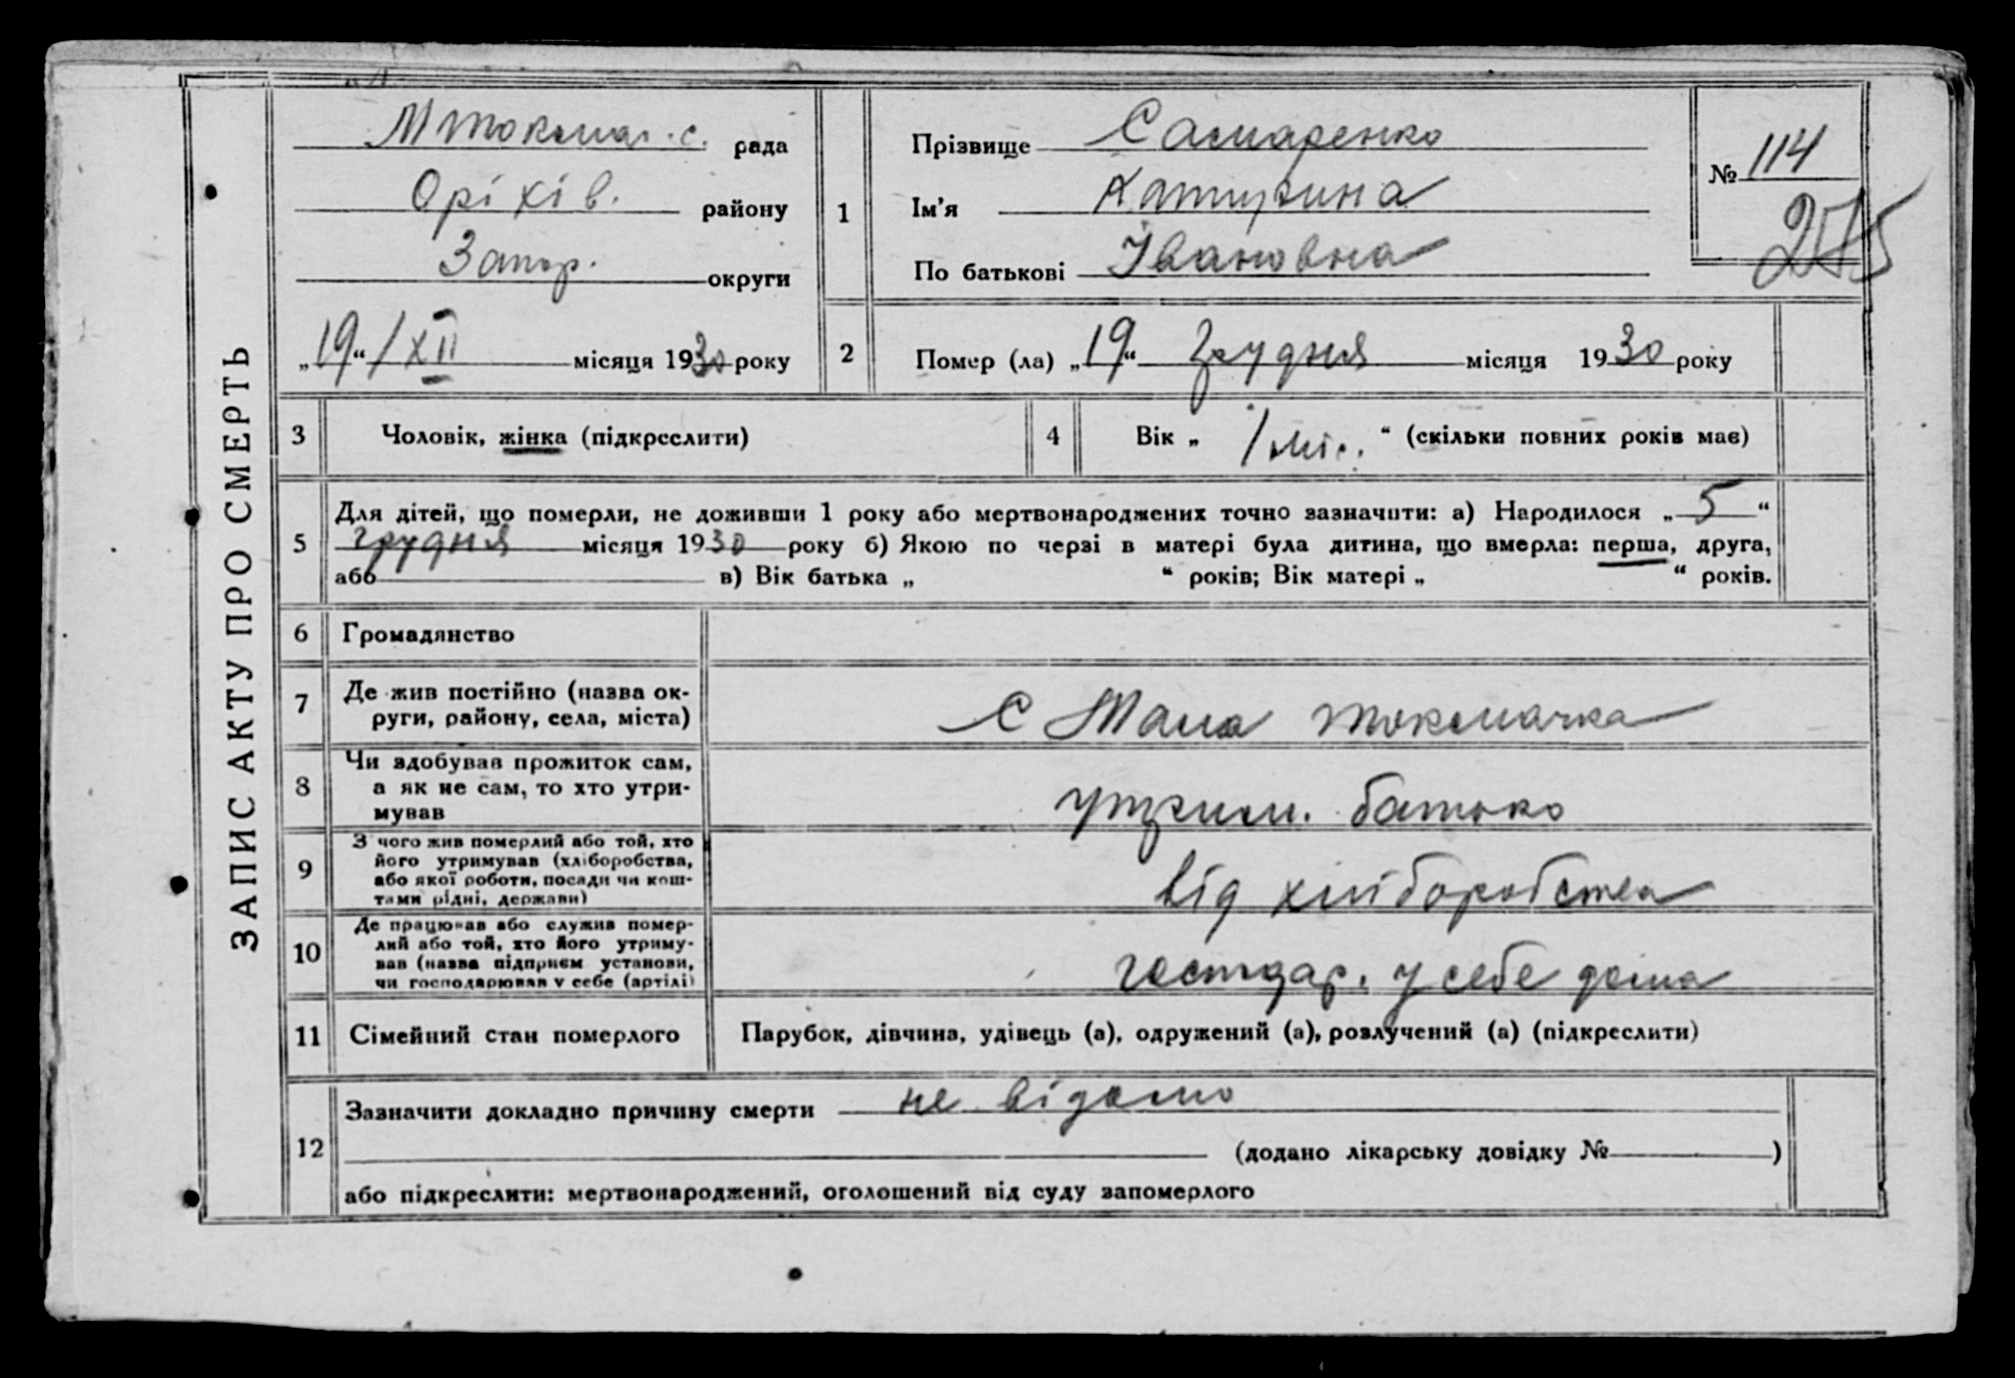 ЗАПИС АКТУ ПРО СМЕРТЬ
Мтокмач. с. рада
Оріхів. району
Запор. округи
„19“/XII місяця 1930 року
1
Прізвище Самаренко
Ім'я Катерина
По батькові Івановна
№ 114
275
2
Помер (ла) „19“ Грудня місяця 1930 року
3 Чоловік, жінка (підкреслити)
4 Вік „ 1 міс. “ (скільки повних років має)
5 Для дітей, що померли, не доживши 1 року або мертвонароджених точно зазначити: а) Народилося „ 5 “
грудня місяця 1930 року б) Якою по черзі в матері була дитина, що вмерла: перша, друга,
або в) Вік батька „ “ років; Вік матері „ “ років.
6 Громадянство
7 Де жив постійно (назва ок-
руги, району, села, міста)
С Мала токмачка
8 Чи здобував прожиток сам,
а як не сам, то хто утри-
мував
утрим. батько
9 З чого жив померлий або той, хто
його утримував (хліборобства,
або якої роботи, посади чи кош-
тами рідні, держави)
від хліборобства
10 Де працював або служив помер-
лий або той, хто його утриму-
вав (назва підприєм установи,
чи господарював у себе (артілі)
господар. у себе дома
11 Сімейний стан померлого
Парубок, дівчина, удівець (а), одружений (а), розлучений (а) (підкреслити)
12 Зазначити докладно причину смерти не відомо
(додано лікарську довідку № )
або підкреслити: мертвонароджений, оголошений від суду запомерлого